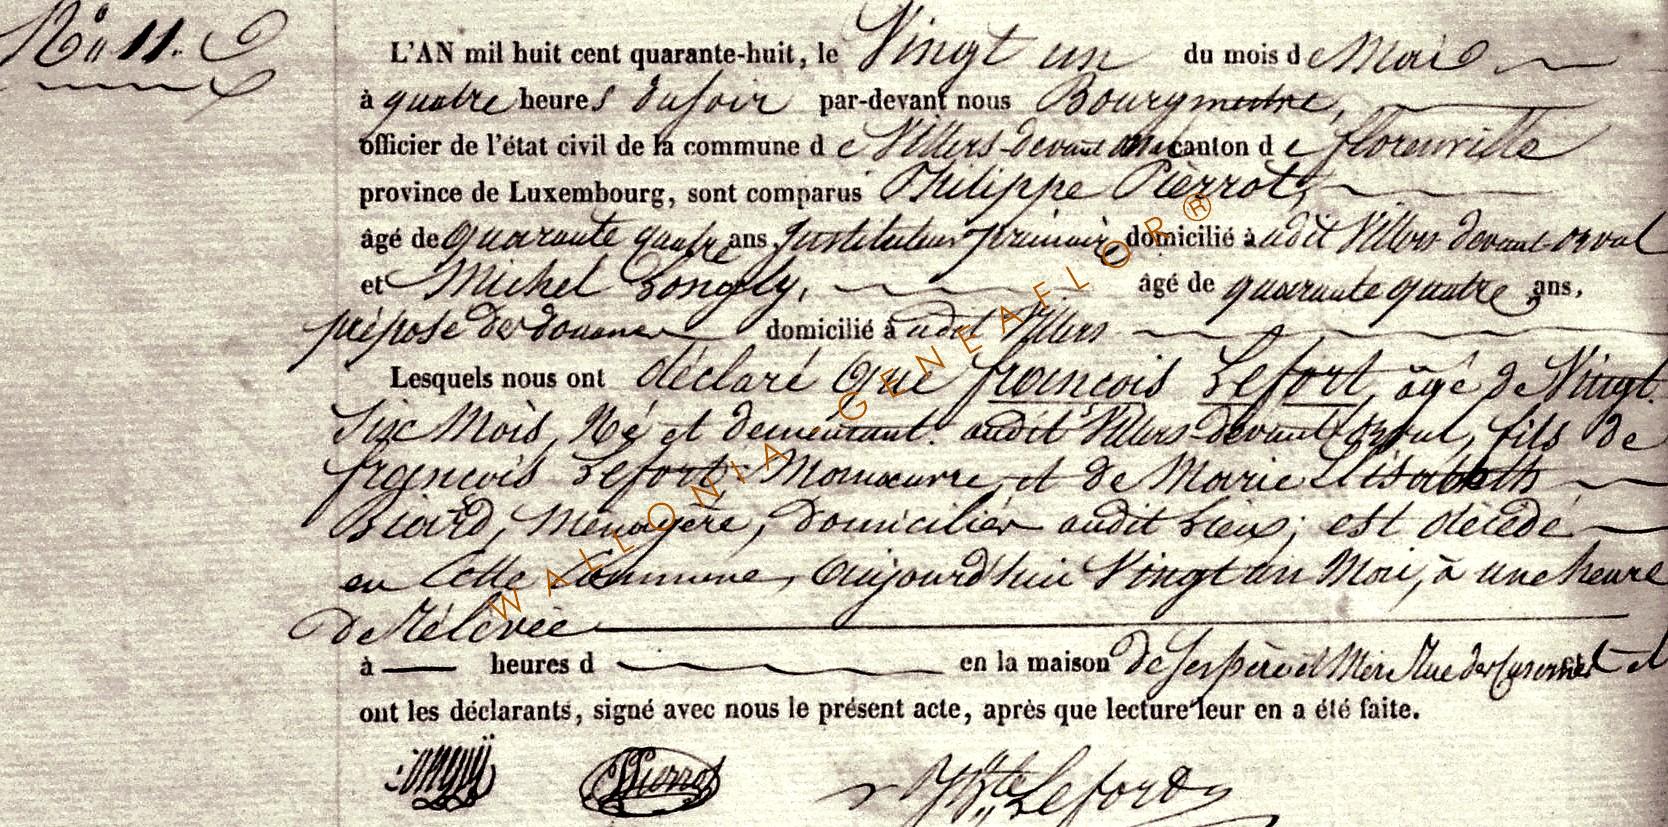 No 11.
L'AN mil huit cent quarante-huit, le Vingt un du mois de Mai
à quatre heures du soir par-devant nous Bourgmestre,
officier de l'état civil de la commune de Villers-devant orval canton de florenville
province de Luxembourg, sont comparus Philippe Pierrot,
âgé de quarante quatre ans, Instituteur primaire, domicilié audit Villers devant-orval
et Michel Longly, âgé de quarante quatre ans,
préposé des douanes domicilié audit Villers
Lesquels nous ont déclaré que françois Lefort, âgé de Vingt
Six Mois, Né et demeurant audit Villers-devant Orval, fils de
françois Lefort Manœuvre, et de Marie Elisabeth
Biard, Ménagère, domiciliés audit Lieu; est décédé
en Cette Commune, Aujourd'hui Vingt un Mai, à une heure
de Rélévée
à heures d en la maison de Ses père et Mère Rue des et
ont les déclarants, signé avec nous le présent acte, après que lecture leur en a été faite.
Pierrot Lefort
WALLONIA GENEAFLOR®